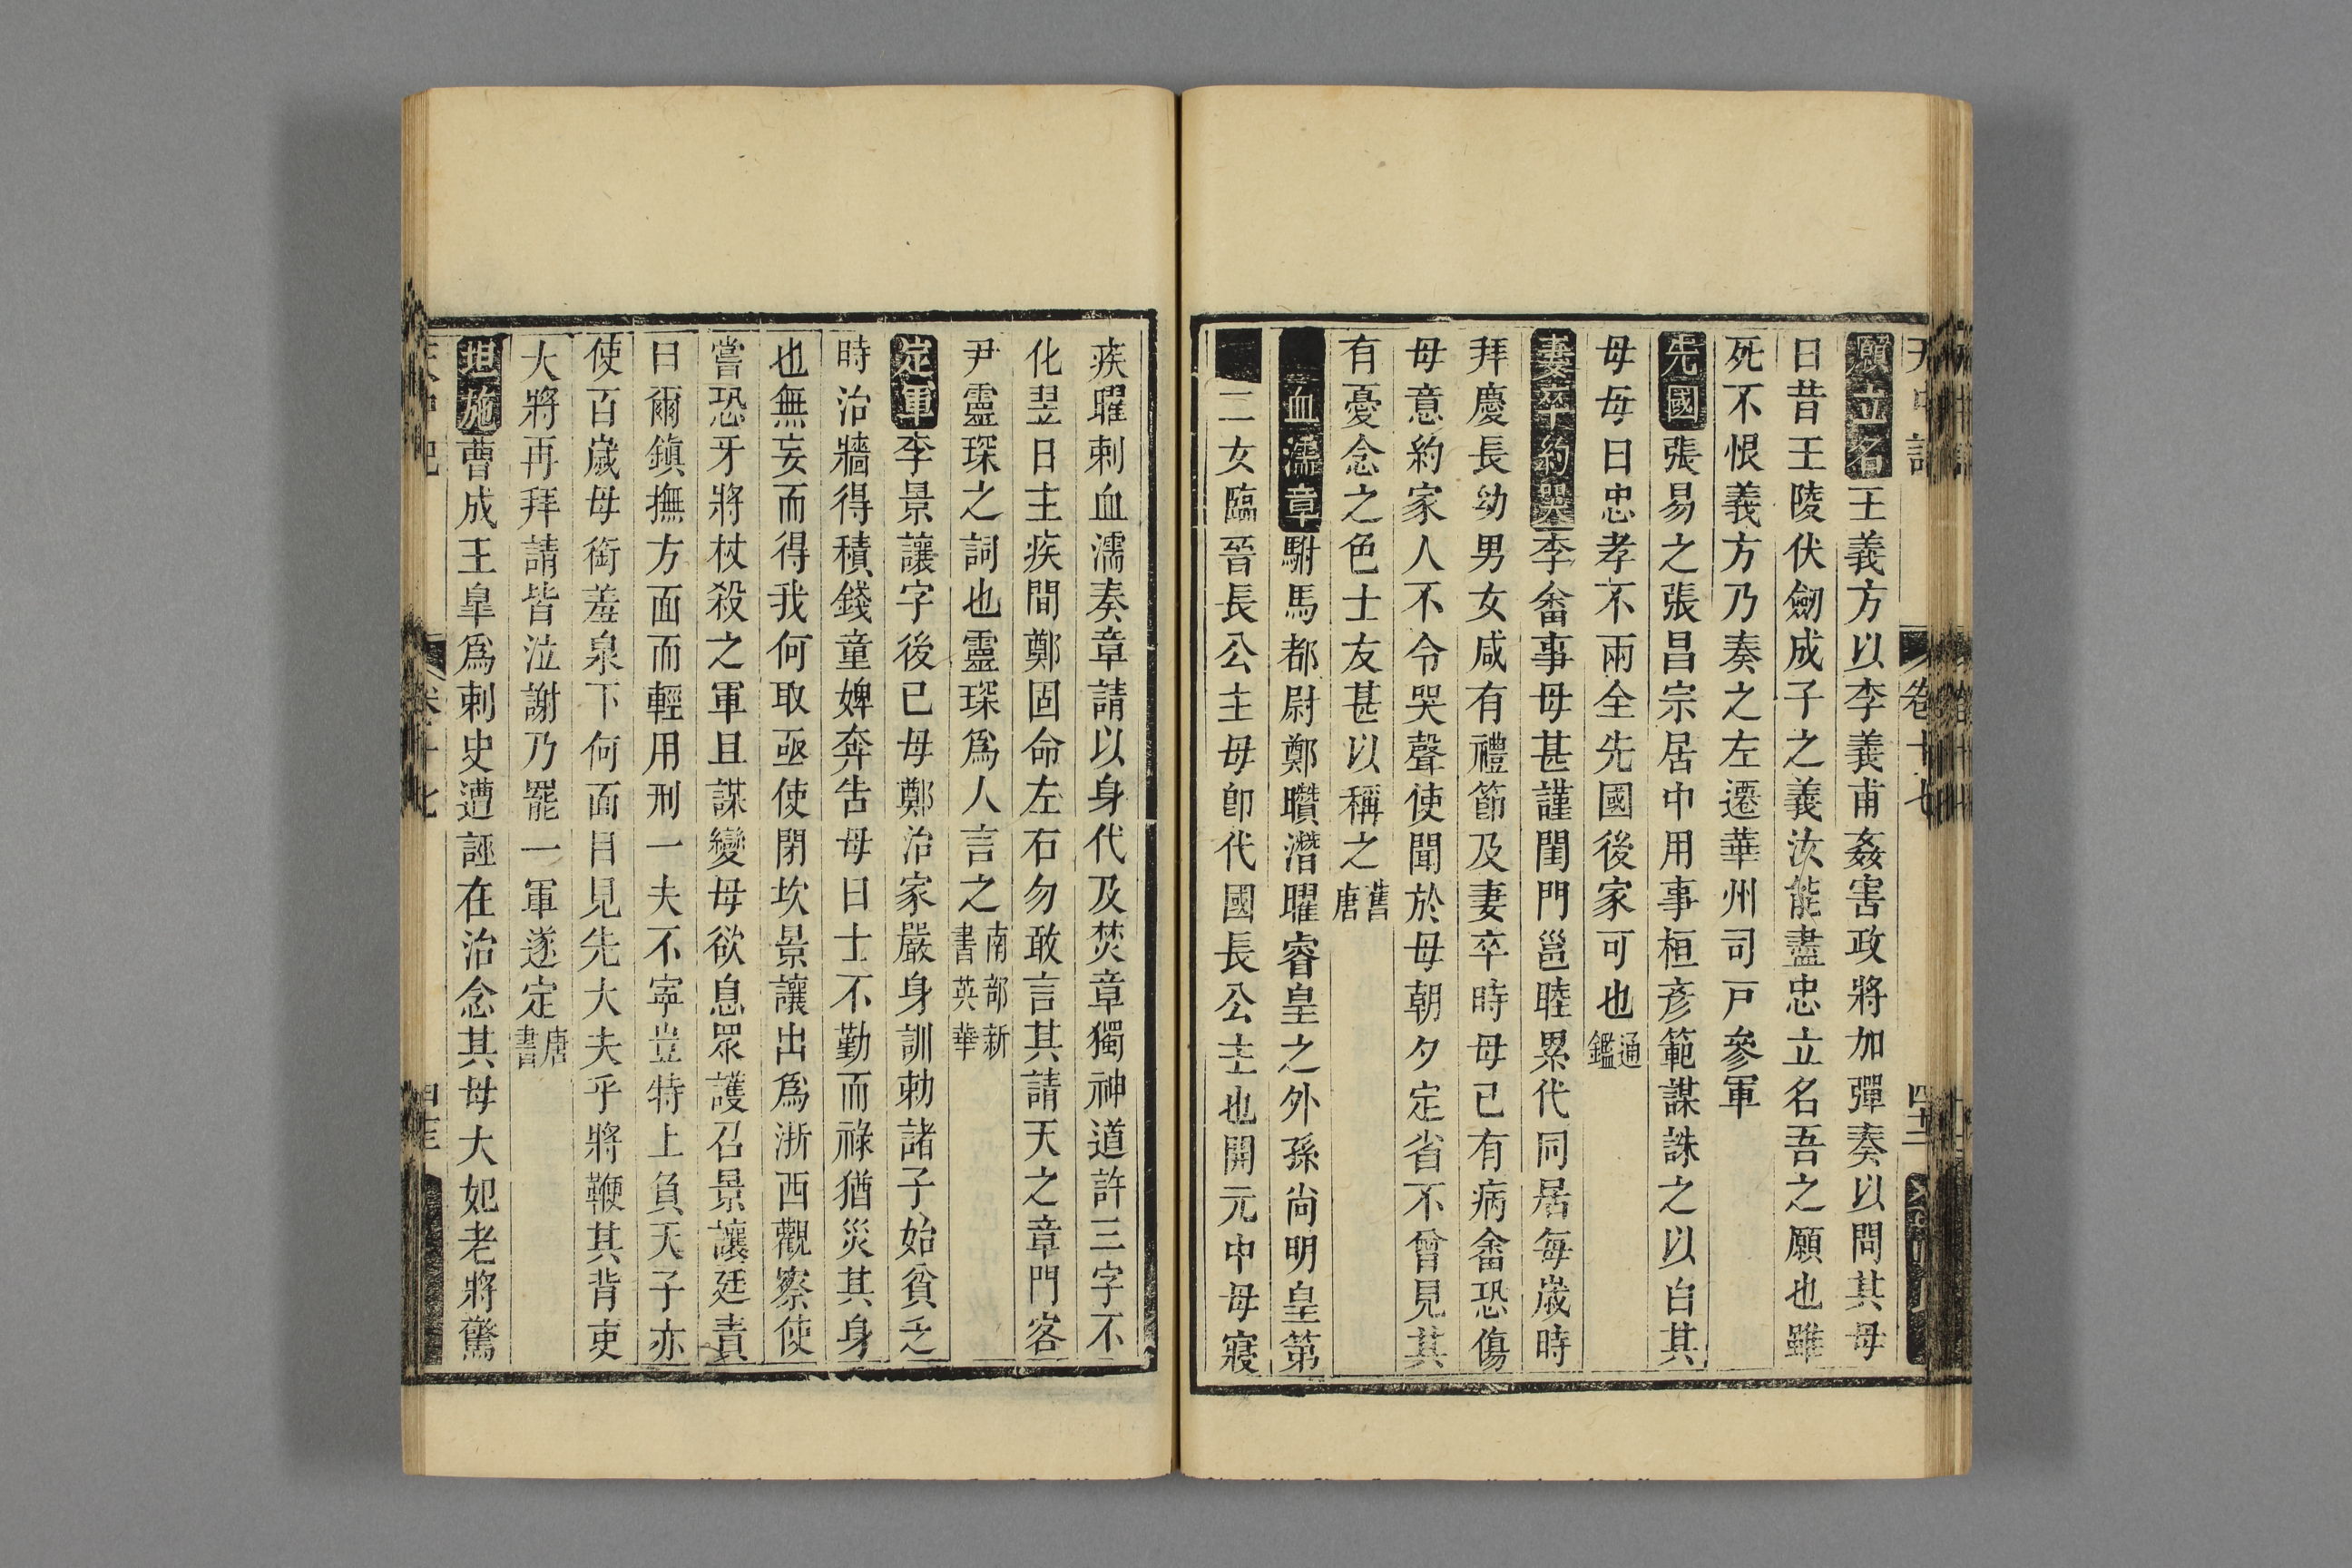 天中記 卷十七 四十二
願立名王義方以李義甫姦害政將加彈奏以問其母
曰昔王陵伏劒成子之義汝能盡忠立名吾之願也雖
死不恨義方乃奏之左遷華州司戸參軍
先國張易之張昌宗居中用事桓彦範謀誅之以白其
母母曰忠孝不兩全先國後家可也通鑑
妻卒約哭李畬事母甚謹閨門邕睦累代同居每歲時
拜慶長幼男女咸有禮節及妻卒時母已有病畬恐傷
母意約家人不令哭聲使聞於母朝夕定省不曾見其
有憂念之色士友甚以稱之舊唐
血濡章駙馬都尉鄭瓚潛曜睿皇之外孫尚明皇第
二女臨晉長公主母卽代國長公主也開元中母寢
疾曜刺血濡奏章請以身代及焚章獨神道許三字不
化翌日主疾間鄭固命左右勿敢言其請天之章門客
尹靈琛之詞也靈琛爲人言之南部新書英華
定軍李景讓字後已母鄭治家嚴身訓勅諸子始貧乏
時治牆得積錢童婢奔告母曰士不勤而祿猶災其身
也無妄而得我何取亟使閉坎景讓出爲浙西觀察使
嘗恐牙將杖殺之軍且謀變母欲息眾護召景讓廷責
曰爾鎮撫方面而輕用刑一夫不寧豈特上負天子亦
使百歲母銜羞泉下何面目見先大夫乎將鞭其背吏
大將再拜請皆泣謝乃罷一軍遂定唐書
坦施曹成王皐爲刺史遭誣在治念其母大妃老將驚
卷十七